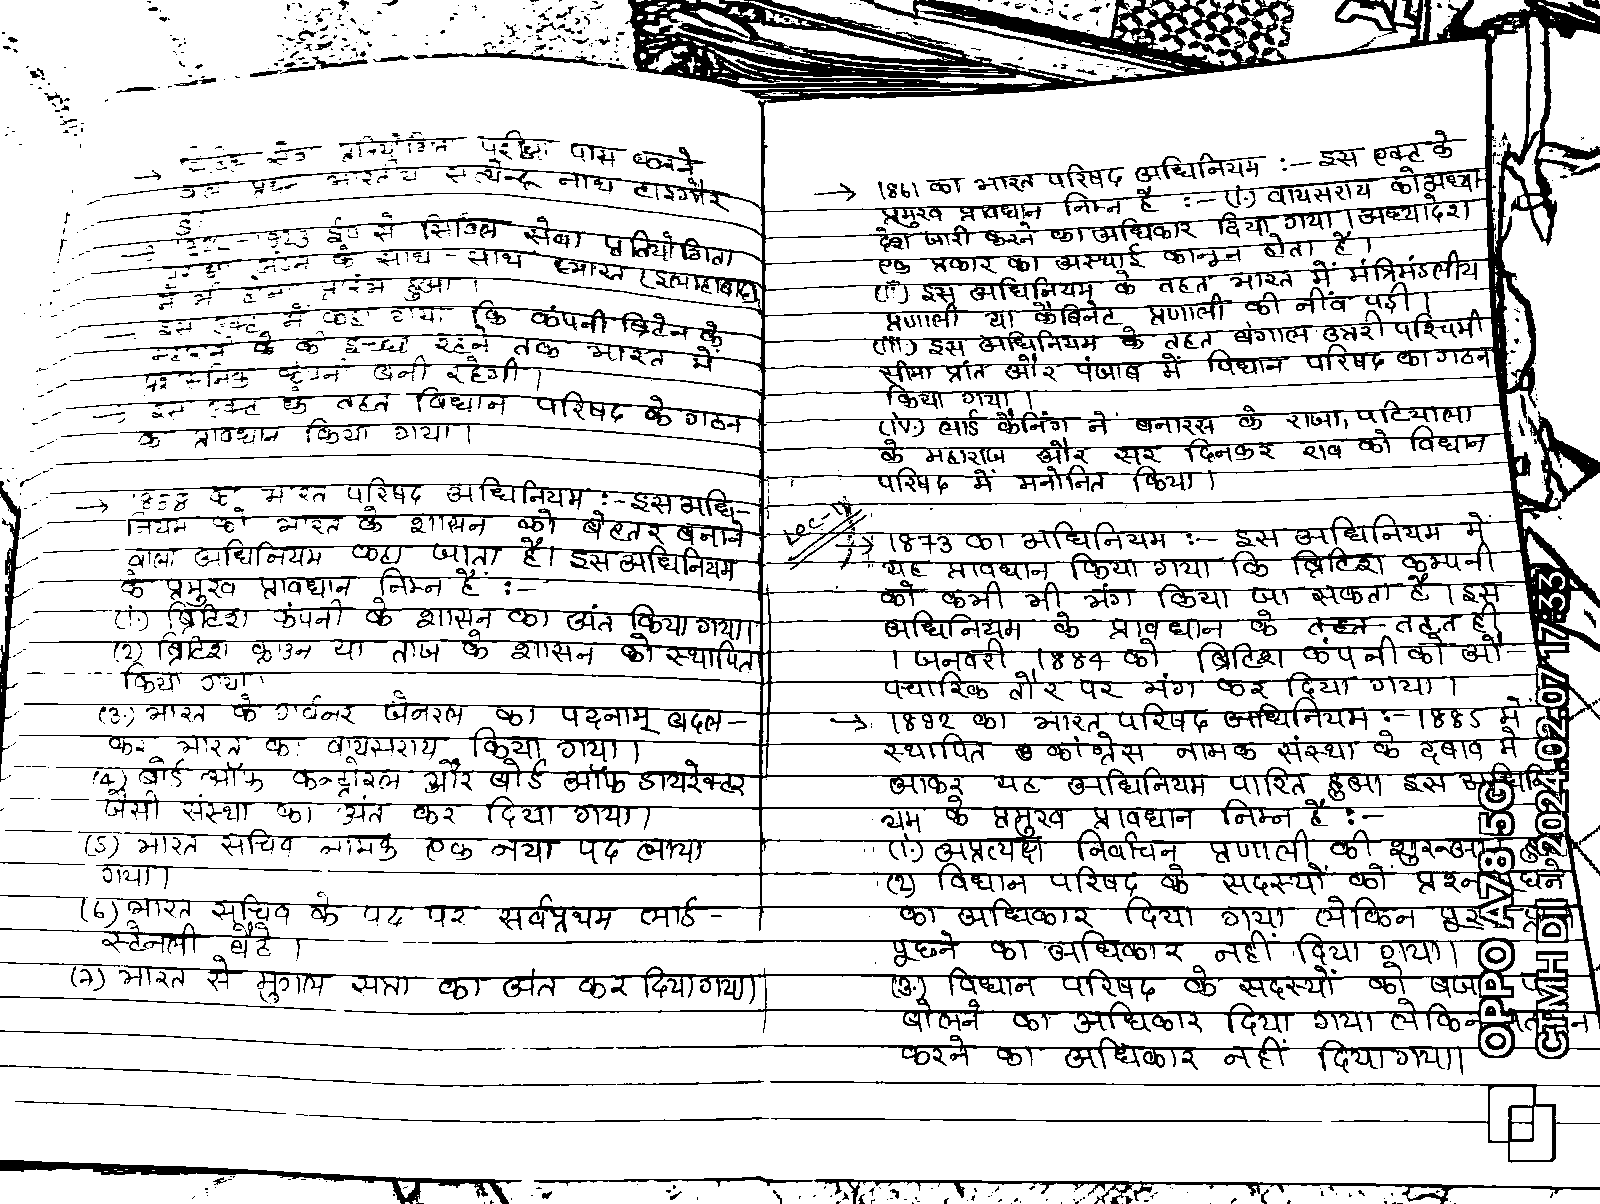 परीक्षा पास करने
सत्येन्द्र नाथ टाइगौर
ई० से सिविल सेवा प्रतियोगिता
के साथ - साथ भारत (इलाहाबाद)
हुआ ।
कहा गया कि कंपनी ब्रिटेन के
के के इच्छा रहने तक भारत में
बनी रहेगी ।
इस एक्ट के तहत विधान परिषद के गठन
के प्रावधान किया गया ।
→ 1858 का भारत परिषद अधिनियम :- इस अधि-
नियम को भारत के शासन को बेहतर बनाने
वाला अधिनियम कहा जाता है। इस अधिनियम
के प्रमुख प्रावधान निम्न है :-
(1) ब्रिटिश कंपनी के शासन का अंत किया गया।
(2) ब्रिटिश क्राउन या ताज के शासन को स्थापित
किया गया।
(3) भारत के गर्वनर जेनरल का पदनाम बदल-
कर भारत का वायसराय किया गया।
(4) बोर्ड ऑफ कन्ट्रोल और बोर्ड ऑफ डायरेक्टर
जैसी संस्था का अंत कर दिया गया।
(5) भारत सचिव नामक एक नया पद लाया
गया।
(6) भारत सचिव के पद पर सर्वप्रथम लार्ड -
स्टेनली बैठे ।
(7) भारत से मुगल सत्ता का अंत कर दिया गया।
→ 1861 का भारत परिषद अधिनियम :- इस एक्ट के
प्रमुख प्रावधान निम्न है :- (i) वायसराय को अध्या
देश जारी करने का अधिकार दिया गया। अध्यादेश
एक प्रकार का अस्थाई कानून होता है।
(ii) इस अधिनियम के तहत भारत में मंत्रिमंडलीय
प्रणाली या कैबिनेट प्रणाली की नींव पड़ी।
(iii) इस अधिनियम के तहत बंगाल उत्तरी पश्चिमी
सीमा प्रांत और पंजाब में विधान परिषद का गठन
किया गया ।
(iv) लार्ड कैनिंग ने बनारस के राजा, पटियाला
के महाराज और सर दिनकर राव को विधान
परिषद में मनोनित किया।
→ 1873 का अधिनियम :- इस अधिनियम में
यह प्रावधान किया गया कि ब्रिटिश कम्पनी
को कभी भी भंग किया जा सकता है । इस
अधिनियम के प्रावधान के तहत ही
1 जनवरी 1884 को ब्रिटिश कंपनी को औ-
पचारिक तौर पर भंग कर दिया गया।
→ 1892 का भारत परिषद अधिनियम :- 1885 में
स्थापित कांग्रेस नामक संस्था के दबाव में
आकर यह अधिनियम पारित हुआ इस अधिनि
यम के प्रमुख प्रावधान निम्न है :-
(1) अप्रत्यक्ष निर्वाचन प्रणाली की
(2) विधान परिषद के सदस्यों को प्रश्न
का अधिकार दिया गया लेकिन
पूछने का अधिकार नहीं दिया गया।
(3) विधान परिषद के सदस्यों को
बोलने का अधिकार दिया गया लेकिन
करने का अधिकार नहीं दिया गया।
OPPO A78 5G
CTMH DI, 2024.02.07/17:33